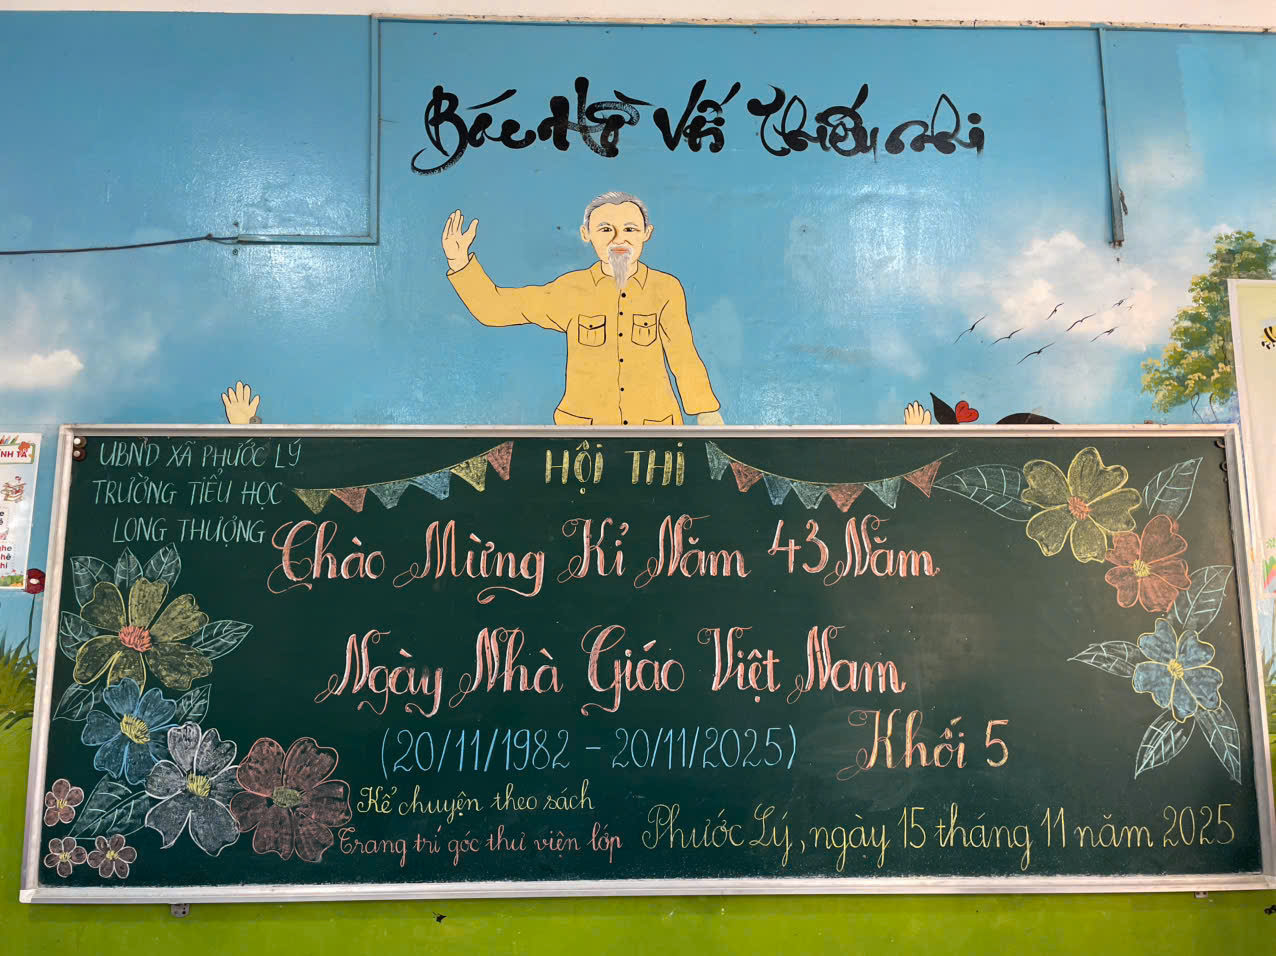 Bác Hồ Với Thiếu nhi
UBND XÃ PHƯỚC LÝ
TRƯỜNG TIỂU HỌC
LONG THƯỢNG
HỘI THI
Chào Mừng Kỉ Năm 43 Năm
Ngày Nhà Giáo Việt Nam
(20/11/1982 - 20/11/2025)
Khối 5
Kể chuyện theo sách
Trang trí góc thư viện lớp
Phước Lý, ngày 15 tháng 11 năm 2025